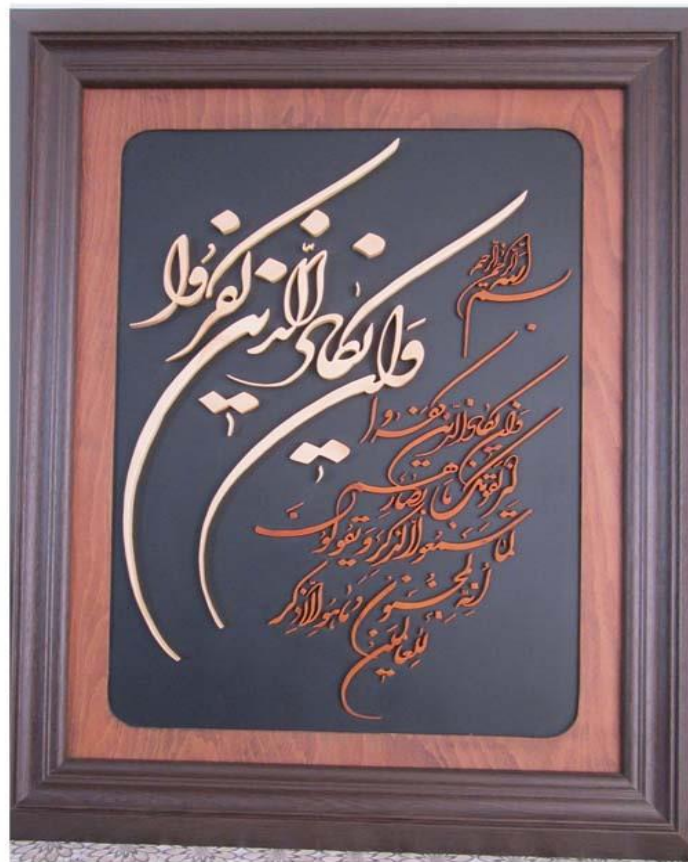 وَان یکاد الذین کفروا
بسم الله الرحمن الرحیم
وَان یکاد الذین کفروا
لیزلقونک بابصارهم
لمّا سَمعوا الذکرَ وَ یَقولونَ
اِنّهُ لَمجنون وَ ما هُوَ اِلّا ذِکر
لِلعالمین